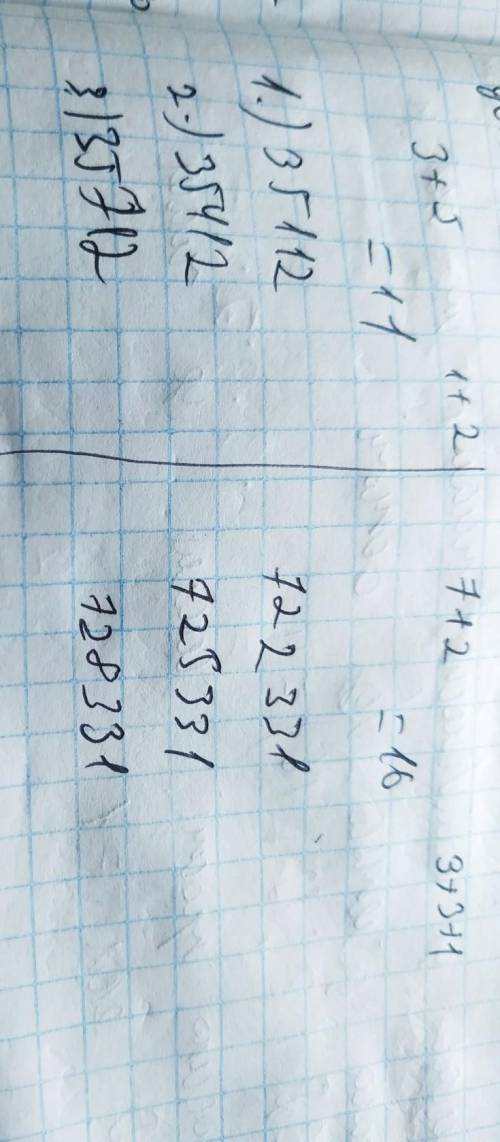 3+5 1+2 7+2 3+3+1
=11 =16
1.) 35112 722331
2.) 35412 725331
3) 35712 728331